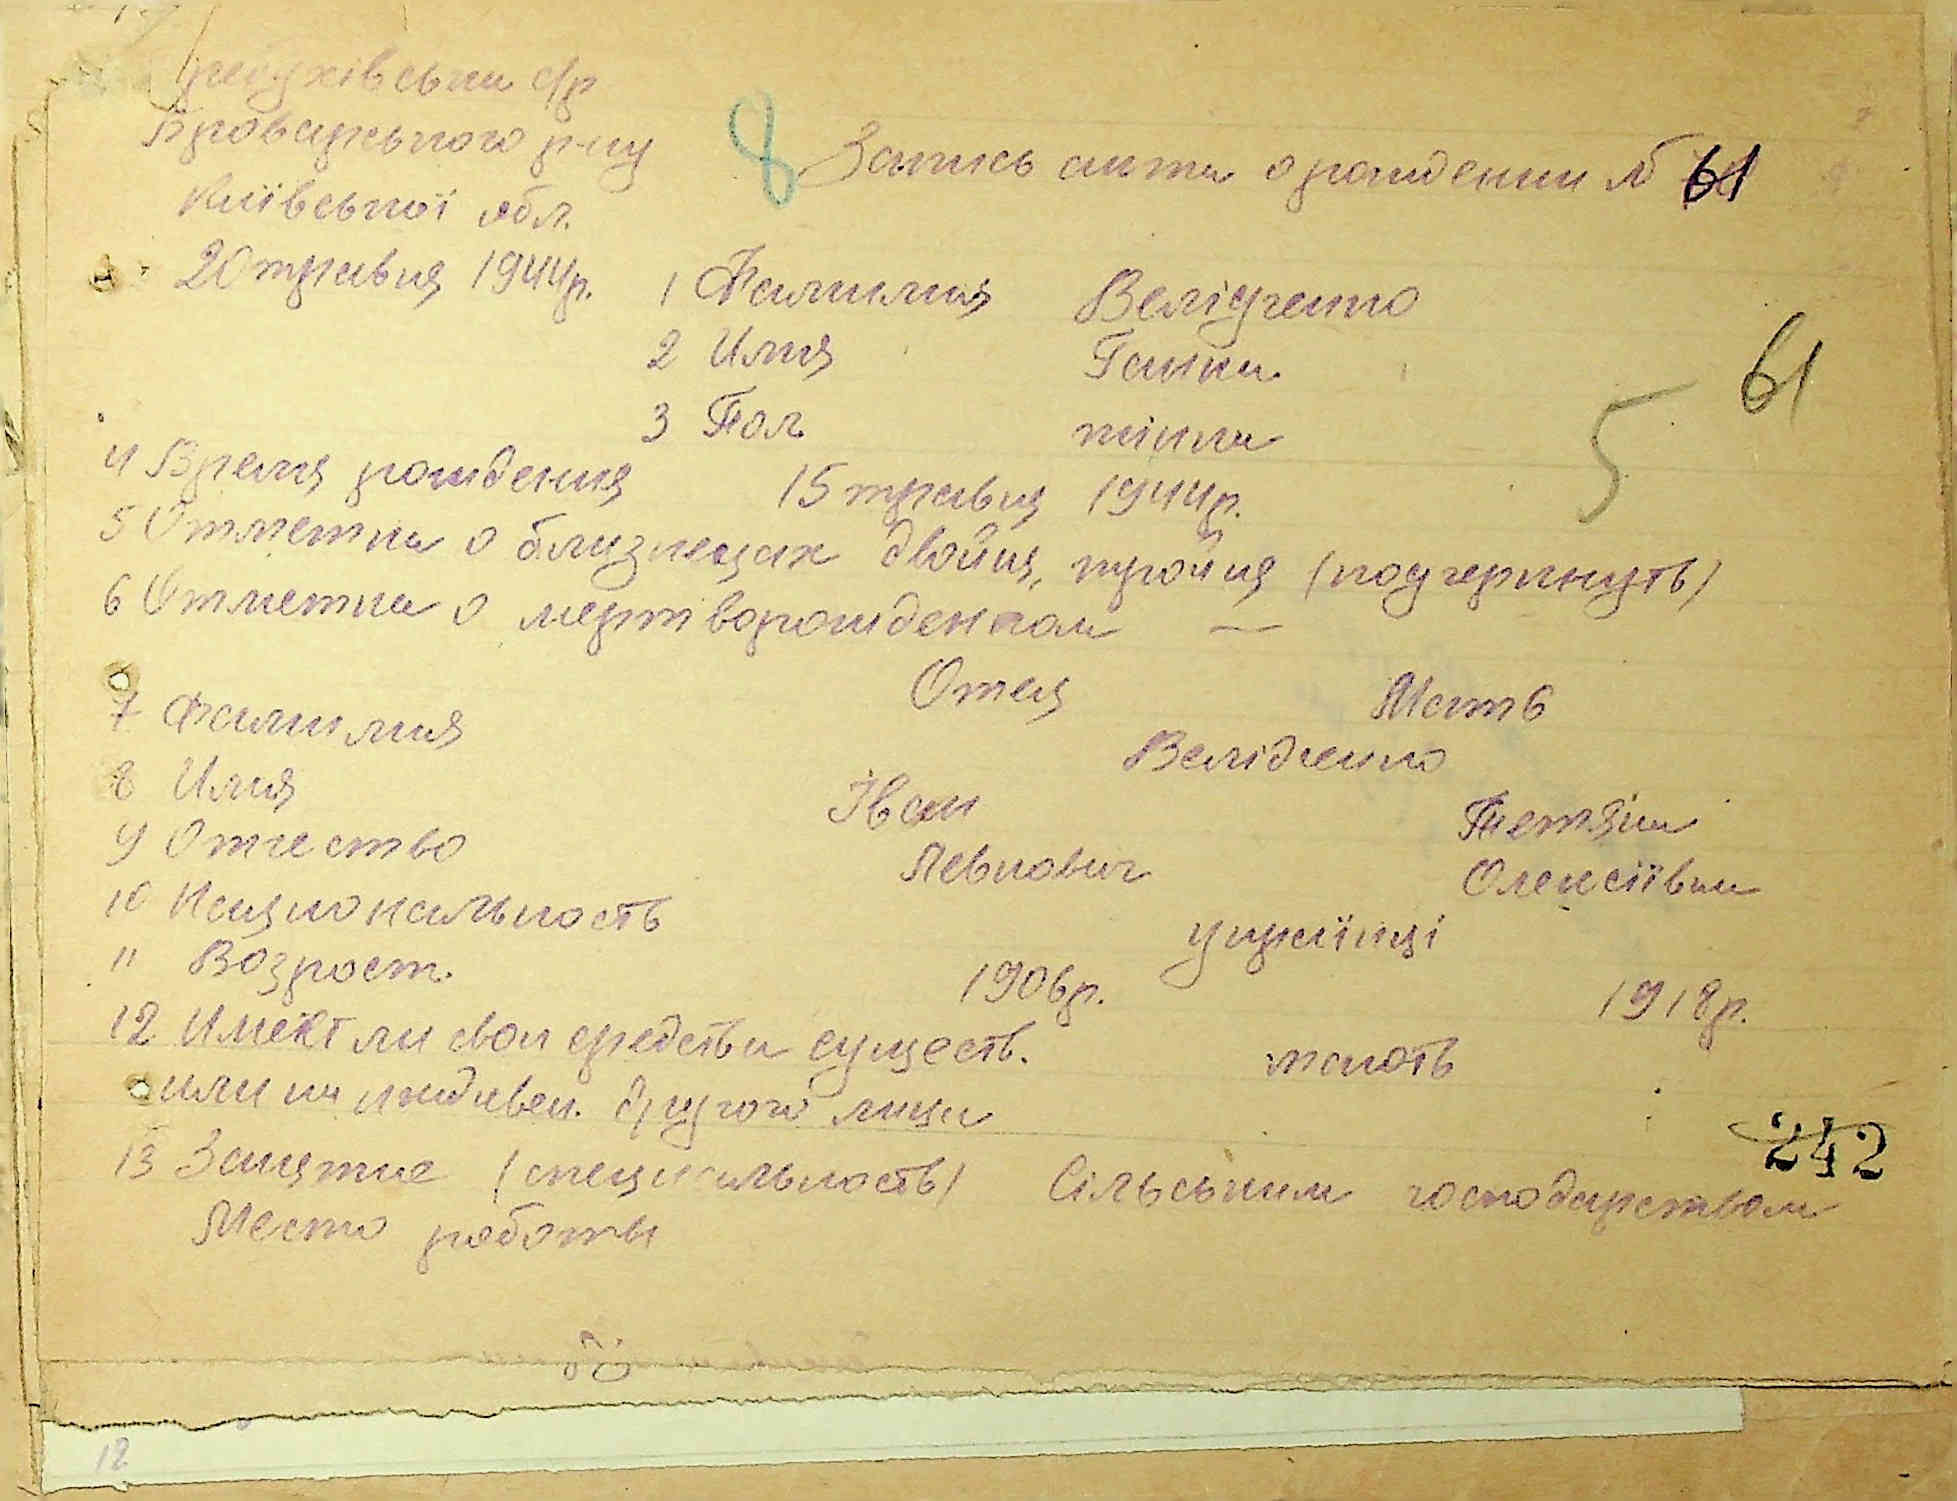 Требухівська с/р
Броварського р-ну
Київської обл.
20 травня 1944р.
8 Запись акта о рождении № 61
1 Фамилия Велідченко
2 Имя Ганна
3 Пол жінка
61
5
4 Время рождения 15 травня 1944р.
5 Отметка о близнецах двойня, тройня (подчеркнуть)
6 Отметка о мертворожденном —
Отец Мать
7 Фамилия Велідченко
8 Имя Іван Тетяна
9 Отчество Левкович Олексіївна
10 Национальность українці
11 Возраст. 1906р. 1918р.
12 Имеют ли свои средства существ. мають
или на иждивен. другого лица
242
13 Занятие (специальность) Сільським господарством
Место работы
12